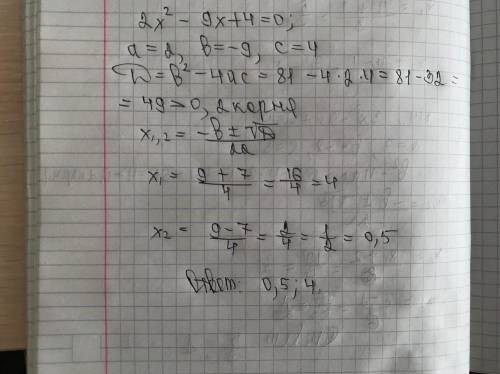 2x² - 9x + 4 = 0;
a = 2, b = -9, c = 4
D = b² - 4ac = 81 - 4 · 2 · 4 = 81 - 32 =
= 49 > 0, 2 корня
x₁,₂ = (-b ± √D)/2a
x₁ = (9 + 7)/4 = 16/4 = 4
x₂ = (9 - 7)/4 = 2/4 = 1/2 = 0,5
Ответ: 0,5; 4.